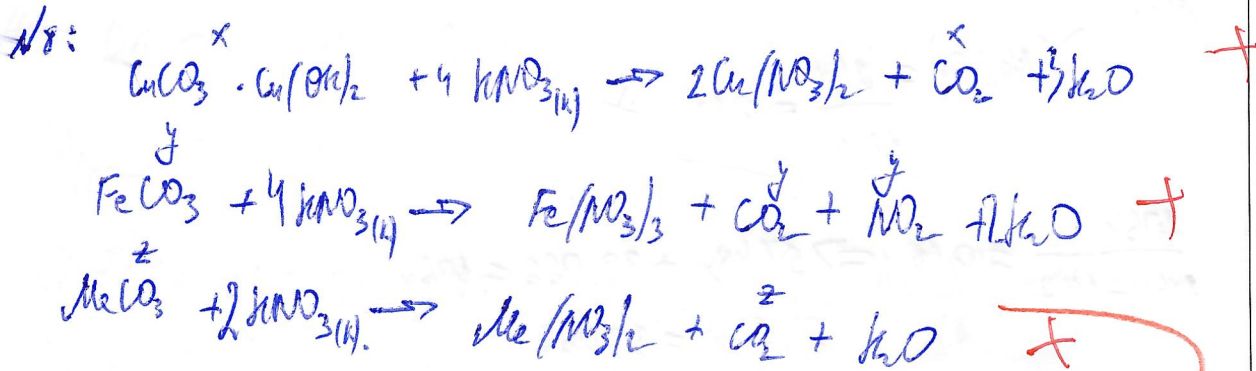 №8:
x x
CuCO₃ · Cu(OH)₂ + 4 HNO₃(к) → 2Cu(NO₃)₂ + CO₂ + 3H₂O +
y y y
FeCO₃ + 4HNO₃(к) → Fe(NO₃)₃ + CO₂ + NO₂ + 2H₂O +
z z
MeCO₃ + 2HNO₃(к). → Me(NO₃)₂ + CO₂ + H₂O +